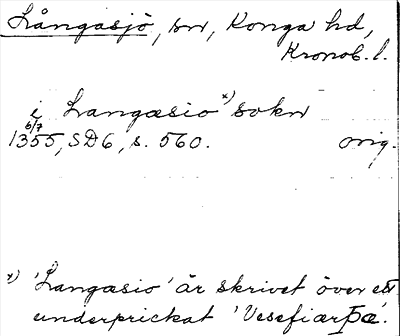 Långasjö, sn, Konga hd,
Kronob. l.
i Langæsio x) sokn
1355 6/7, SD6, s. 560. orig.
x) 'Langæsio' är skrivet över ett
underprickat 'Vesefiærþæ'.